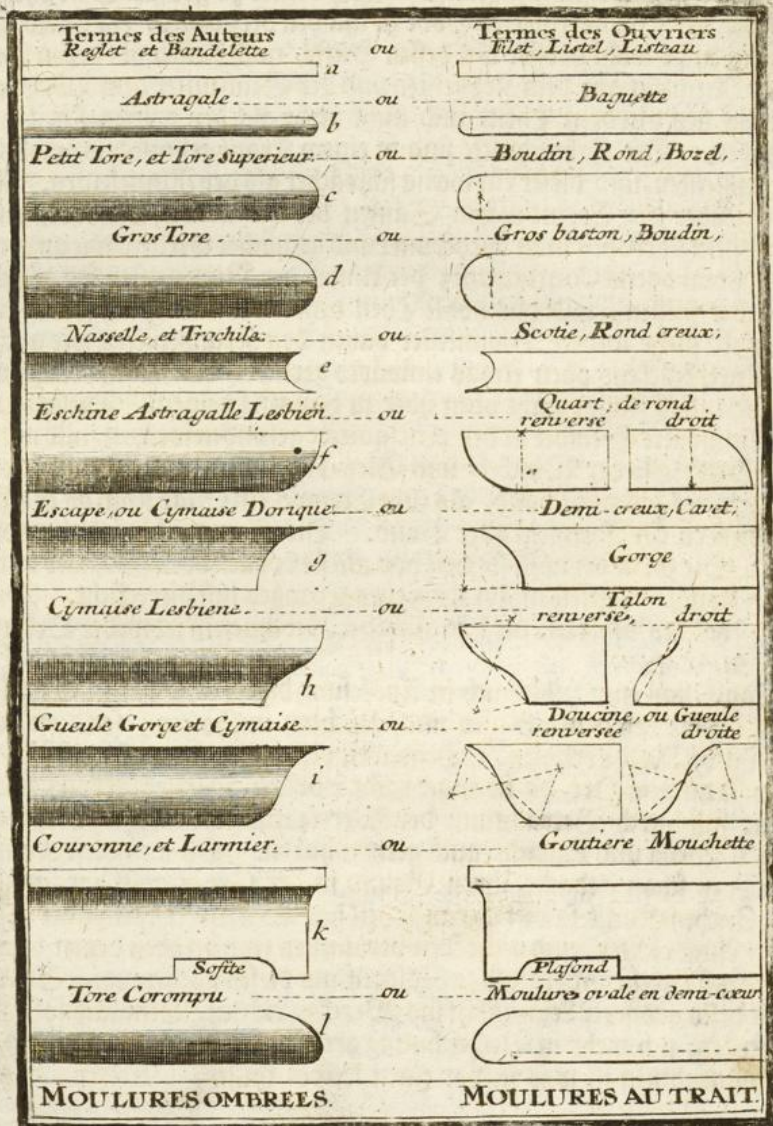 Termes des Auteurs Termes des Ouvriers
Reglet et Bandelette ou Filet, Listel, Listeau
a
Astragale ou Baguette
b
Petit Tore, et Tore Superieur. ou Boudin, Rond, Bozel,
c
Gros Tore ou Gros baston, Boudin,
d
Nasselle, et Trochile. ou Scotie, Rond creux,
e
Eschine Astragalle Lesbien ou Quart, de rond
renverse droit
f
Escape, ou Cymaise Dorique ou Demi-creux, Cavet,
g Gorge
Cymaise Lesbiene ou Talon
renversé, droit
h
Gueule Gorge et Cymaise ou Doucine, ou Gueule
renversée droite
i
Couronne, et Larmier. ou Goutiere Mouchette
k
Sofite Plafond
Tore Corompu ou Moulures ovale en demi-cœur
l
MOULURES OMBREES. MOULURES AU TRAIT.